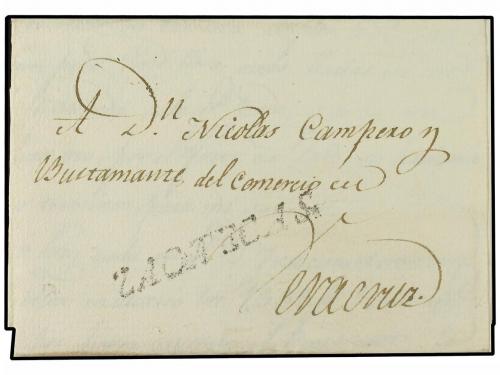 A D.n Nicolas Campero y
Bustamante del Comercio en
ZACATECAS
Veracruz.